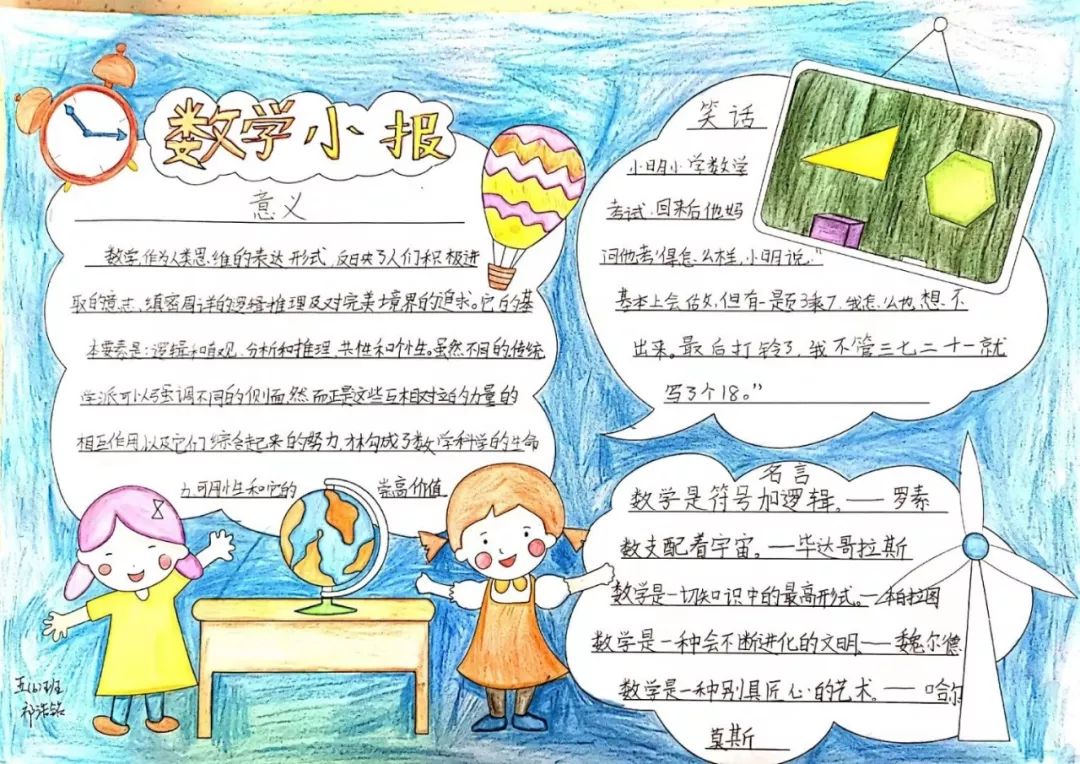 数学小报
意义
数学作为人类思维的表达形式，反映了人们积极进
取的意志，缜密周详的逻辑推理及对完美境界的追求。它的基
本要素是：逻辑和直观、分析和推理、共性和个性。虽然不同的传统
学派可以强调不同的侧面，然而正是这些互相对立的力量的
相互作用，以及它们综合起来的努力，才构成了数学科学的生命
力，可用性和它的 崇高价值
笑话
小明小学数学
考试，回来后他妈
问他考得怎么样，小明说，“
基本上会做，但有一是3乘7，我怎么也想不
出来。最后打铃了，我不管三七二十一就
写了个18。”
名言
数学是符号加逻辑。——罗素
数支配着宇宙。—毕达哥拉斯
数学是一切知识中的最高形式。—柏拉图
数学是一种会不断进化的文明。——魏尔德
数学是一种别具匠心的艺术。——哈尔
莫斯
班